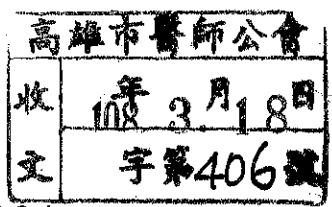 高雄市醫師公會
收文
108年3.月18日
字第406號